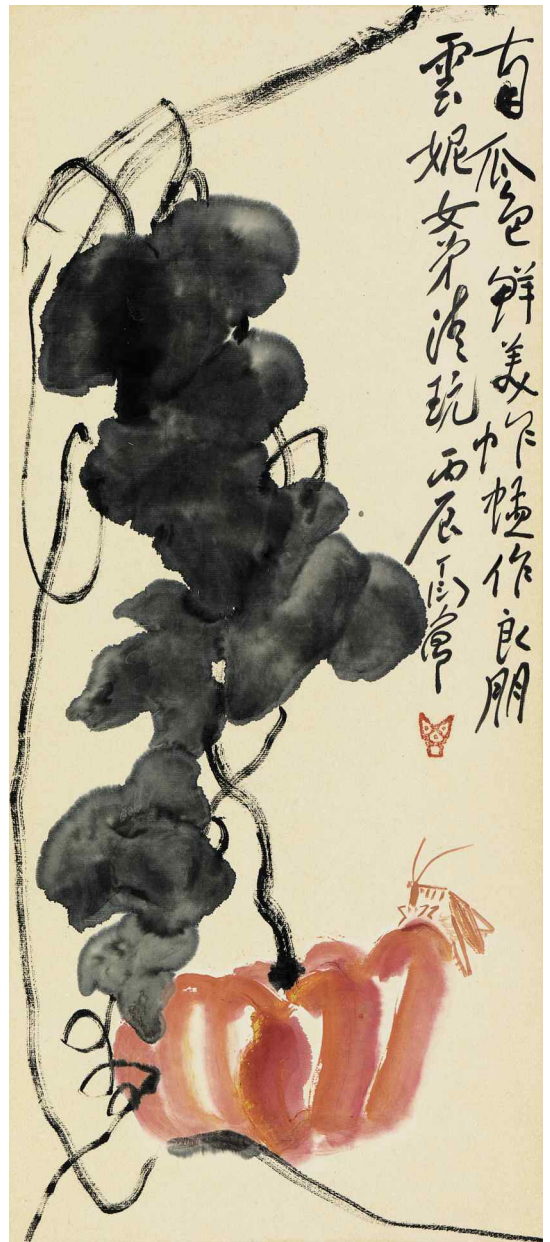 南瓜色鮮美蚱蜢作良朋
雲妮女弟清玩丙辰丁衍庸